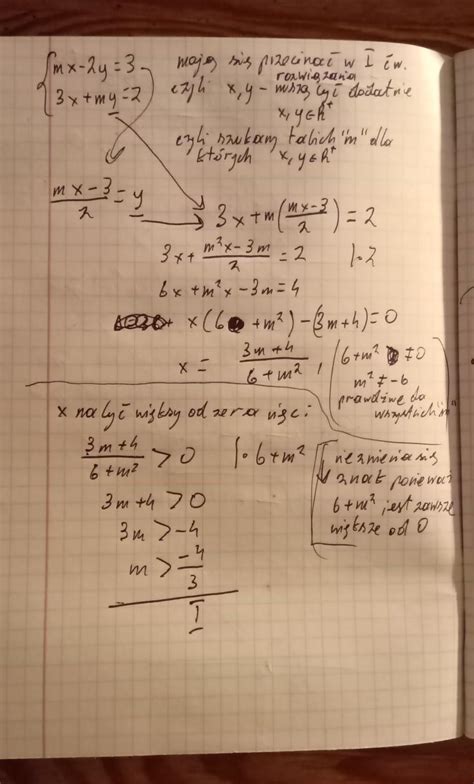 mx-2y=3
3x+my=2
mają się przecinać w I ćw.
rozwiązania
czyli x,y - muszą być dodatnie
x,y∈R⁺
czyli szukam takich "m" dla
których x,y∈R⁺
(mx-3)/2 = y
3x+m((mx-3)/2)=2
3x+(m²x-3m)/2=2 |·2
6x+m²x-3m=4
x(6+m²)-(3m+4)=0
x = (3m+4)/(6+m²) ,
6+m² ≠0
m²≠-6
prawdziwe dla
wszystkich "m"
x ma być większy od zera więc:
(3m+4)/(6+m²) > 0 |·6+m²
nie zmienia się
znak ponieważ
6+m² jest zawsze
większe od 0
3m+4>0
3m>-4
m > -4/3
I